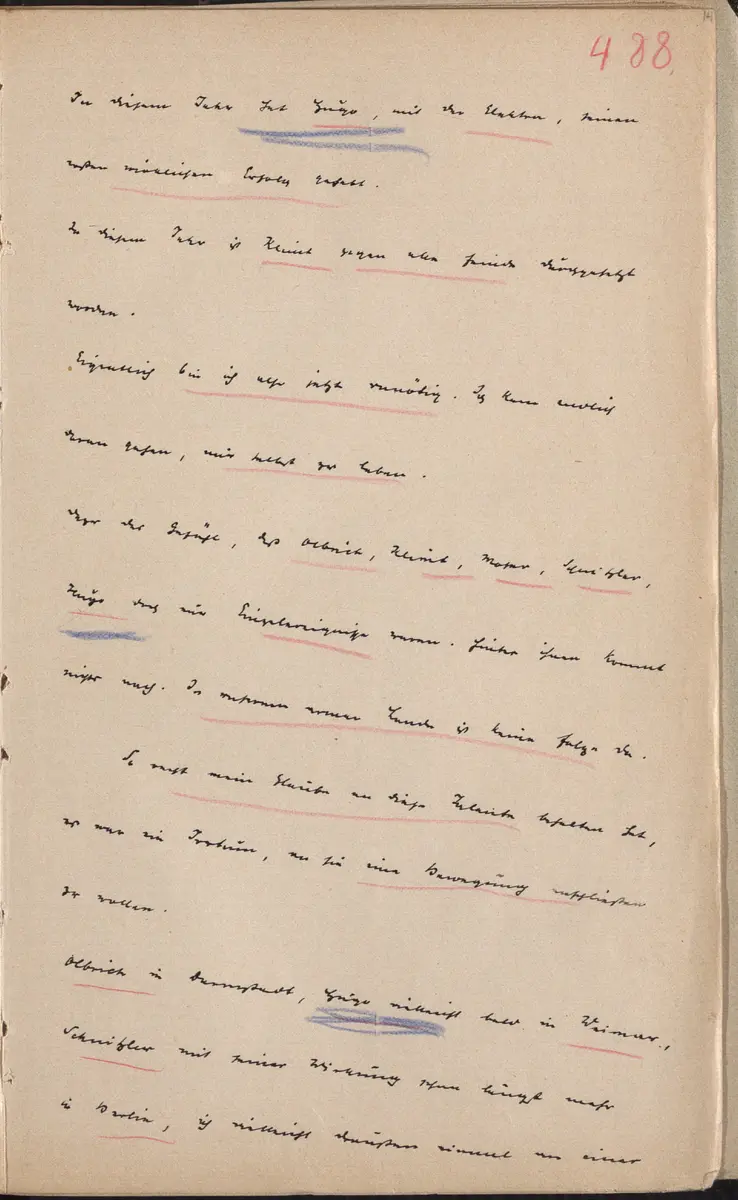 488.
In diesem Jahr hat Hugo, mit der Elektra, seinen
ersten wirklichen Erfolg gehabt.
In diesem Jahr ist Klimt gegen alle Feinde durchgesetzt
worden.
Eigentlich bin ich also jetzt unnötig. Ich kann endlich
daran gehen, mir selbst zu leben.
Dazu das Gefühl, daß Olbrich, Klimt, Moser, Schnitzler,
Hugo doch nur Einzelereignisse waren. Hinter ihnen kommt
nichts nach. In unserem armen Lande ist keine Folge da.
So recht mein Glaube an diese Talente behalten hat,
es war ein Irrtum, an sie eine Bewegung anschließen
zu wollen.
Olbrich in Darmstadt, Hugo vielleicht bald in Weimar,
Schnitzler mit seiner Wirkung schon längst mehr
in Berlin, ich vielleicht draußen einmal an einer